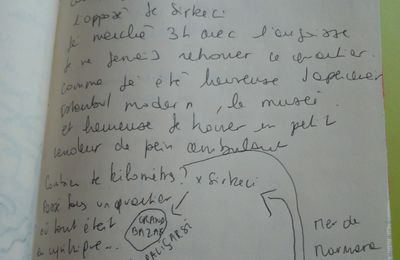 l'opposé de Sirkeci
J'ai marché 3h avec l'angoisse
de ne jamais retrouver ce quartier.
Comme j'ai été heureuse d'apercevoir
Istanbul modern, le musée.
et heureuse de trouver un petit
vendeur de pain ambulant
Combien de kilomètres?
x Sirkeci
un quartier
où tout était
GRAND
BAZAR
Mer de
Marmara